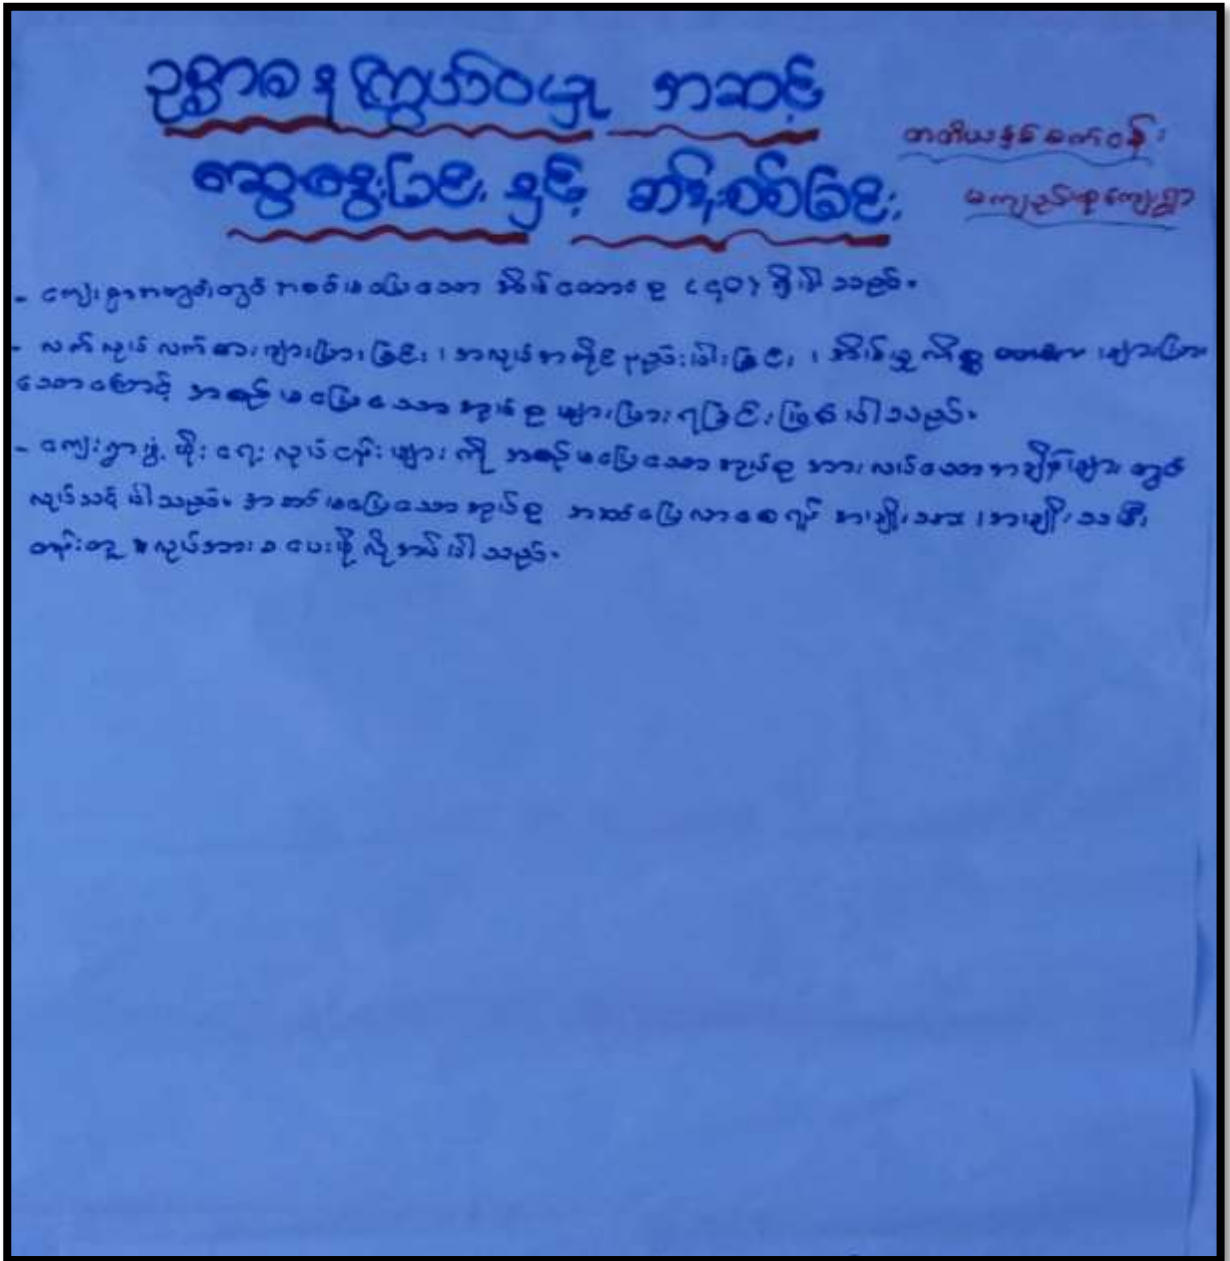 ဥစ္စာဓန ကြွယ်ဝမှု အဆင့်
ဆွေးနွေးခြင်း နှင့် ဆန်းစစ်ခြင်း
တတိယနှစ်စက်ဝန်း
မကျည်းစုကျေးရွာ
- ကျေးရွာအတွင်းတွင် အဆင်မပြေသော အိမ်ထောင်စု (၄၀) ရှိပါသည်။
- လက်လုပ်လက်စားများပြားခြင်း ၊ အလုပ်အကိုင်နည်းပါးခြင်း ၊ အိမ်မှုကိစ္စ များပြား
သောကြောင့် အဆင်မပြေသောအုပ်စု များပြားရခြင်းဖြစ်ပါသည်။
- ကျေးရွာဖွံ့ဖြိုးရေးလုပ်ငန်းများကို အဆင်မပြေသောအုပ်စု အားလပ်သောအချိန်များတွင်
လုပ်သင့်ပါသည်။ အဆင်မပြေသောအုပ်စု အဆင်ပြေလာစေရန် အမျိုးသား ၊ အမျိုးသမီး
တန်းတူ လုပ်အားခပေးဖို့လိုအပ်ပါသည်။